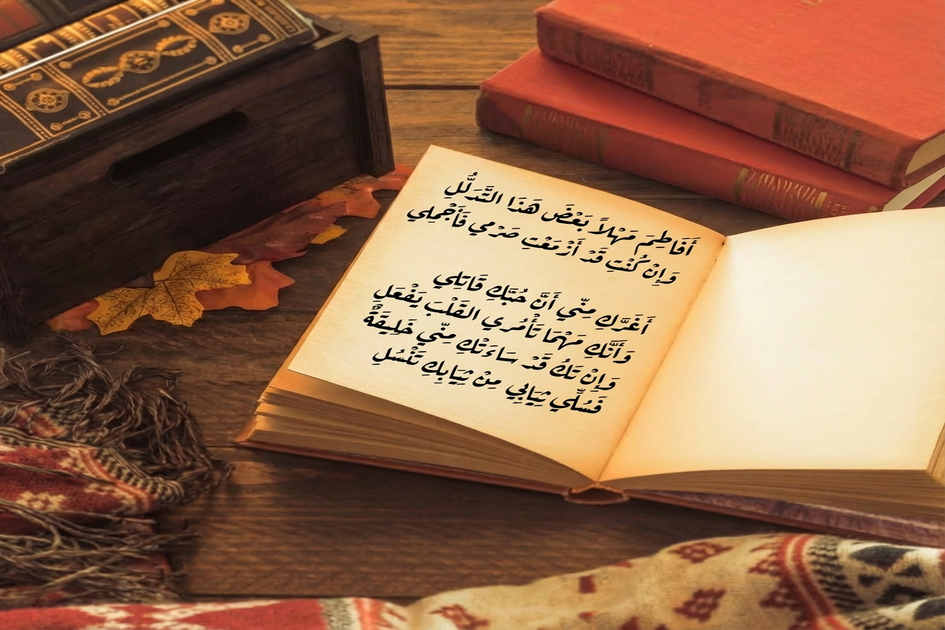 أَفَاطِمَ مَهْلاً بَعْضَ هَذَا التَّدَلُّلِ
وَإِنْ كُنْتِ قَدْ أَزْمَعْتِ صَرْمِي فَأَجْمِلِي
أَغَرَّكِ مِنِّي أَنَّ حُبَّكِ قَاتِلِي
وَأَنَّكِ مَهْمَا تَأْمُرِي القَلْبَ يَفْعَلِ
وَإِنْ تَكُ قَدْ سَاءَتْكِ مِنِّي خَلِيقَةٌ
فَسُلِّي ثِيَابِي مِنْ ثِيَابِكِ تَنْسُلِ